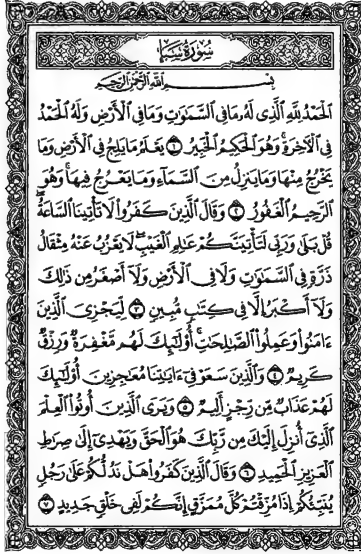 سُورَةُ سَبَإٍ
بِسْمِ ٱللَّهِ ٱلرَّحْمَٰنِ ٱلرَّحِيمِ
ٱلْحَمْدُ لِلَّهِ ٱلَّذِى لَهُۥ مَا فِى ٱلسَّمَٰوَٰتِ وَمَا فِى ٱلْأَرْضِ وَلَهُ ٱلْحَمْدُ
فِى ٱلْءَاخِرَةِ ۚ وَهُوَ ٱلْحَكِيمُ ٱلْخَبِيرُ ١ يَعْلَمُ مَا يَلِجُ فِى ٱلْأَرْضِ وَمَا
يَخْرُجُ مِنْهَا وَمَا يَنزِلُ مِنَ ٱلسَّمَآءِ وَمَا يَعْرُجُ فِيهَا ۚ وَهُوَ
ٱلرَّحِيمُ ٱلْغَفُورُ ٢ وَقَالَ ٱلَّذِينَ كَفَرُوا۟ لَا تَأْتِينَا ٱلسَّاعَةُ ۖ
قُلْ بَلَىٰ وَرَبِّى لَتَأْتِيَنَّكُمْ عَٰلِمِ ٱلْغَيْبِ ۖ لَا يَعْزُبُ عَنْهُ مِثْقَالُ
ذَرَّةٍ فِى ٱلسَّمَٰوَٰتِ وَلَا فِى ٱلْأَرْضِ وَلَآ أَصْغَرُ مِن ذَٰلِكَ
وَلَآ أَكْبَرُ إِلَّا فِى كِتَٰبٍ مُّبِينٍ ٣ لِّيَجْزِىَ ٱلَّذِينَ
ءَامَنُوا۟ وَعَمِلُوا۟ ٱلصَّٰلِحَٰتِ ۚ أُو۟لَٰٓئِكَ لَهُم مَّغْفِرَةٌ وَرِزْقٌ
كَرِيمٌ ٤ وَٱلَّذِينَ سَعَوْ فِىٓ ءَايَٰتِنَا مُعَٰجِزِينَ أُو۟لَٰٓئِكَ
لَهُمْ عَذَابٌ مِّن رِّجْزٍ أَلِيمٌ ٥ وَيَرَى ٱلَّذِينَ أُوتُوا۟ ٱلْعِلْمَ
ٱلَّذِىٓ أُنزِلَ إِلَيْكَ مِن رَّبِّكَ هُوَ ٱلْحَقَّ وَيَهْدِىٓ إِلَىٰ صِرَٰطِ
ٱلْعَزِيزِ ٱلْحَمِيدِ ٦ وَقَالَ ٱلَّذِينَ كَفَرُوا۟ هَلْ نَدُلُّكُمْ عَلَىٰ رَجُلٍ
يُنَبِّئُكُمْ إِذَا مُزِّقْتُمْ كُلَّ مُمَزَّقٍ إِنَّكُمْ لَفِى خَلْقٍ جَدِيدٍ ٧